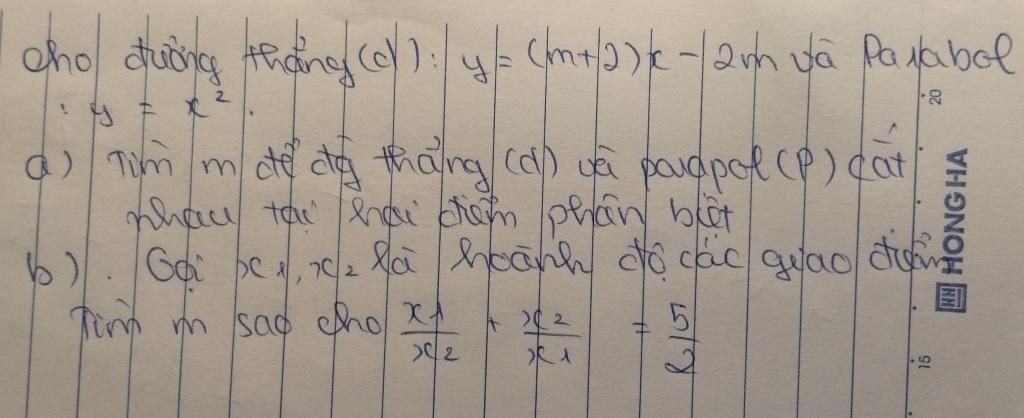 Cho đường thẳng (d): y = (m+2)x - 2m và Parabol
: y = x².
a) Tìm m để đg thẳng (d) và parapol (P) cắt
nhau tại hai điểm phân biệt
b). Gọi x1, x2 là hoành độ các giao điểm
Tìm m sao cho x1/x2 + x2/x1 = 5/2
20
HONG HA
15